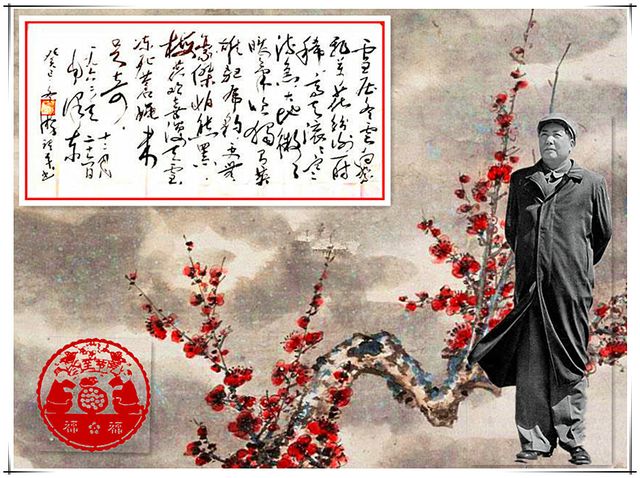 雪压冬雲白絮
飛萬花纷谢一时
稀高天滚滚寒
流急大地微微
暖氣吹獨有英
雄驱虎豹更無
豪傑怕熊罴
梅花欢喜漫天雪
冻死苍蝇未
足奇
毛澤东
十二月
二十六日
一九六二年
癸巳冬